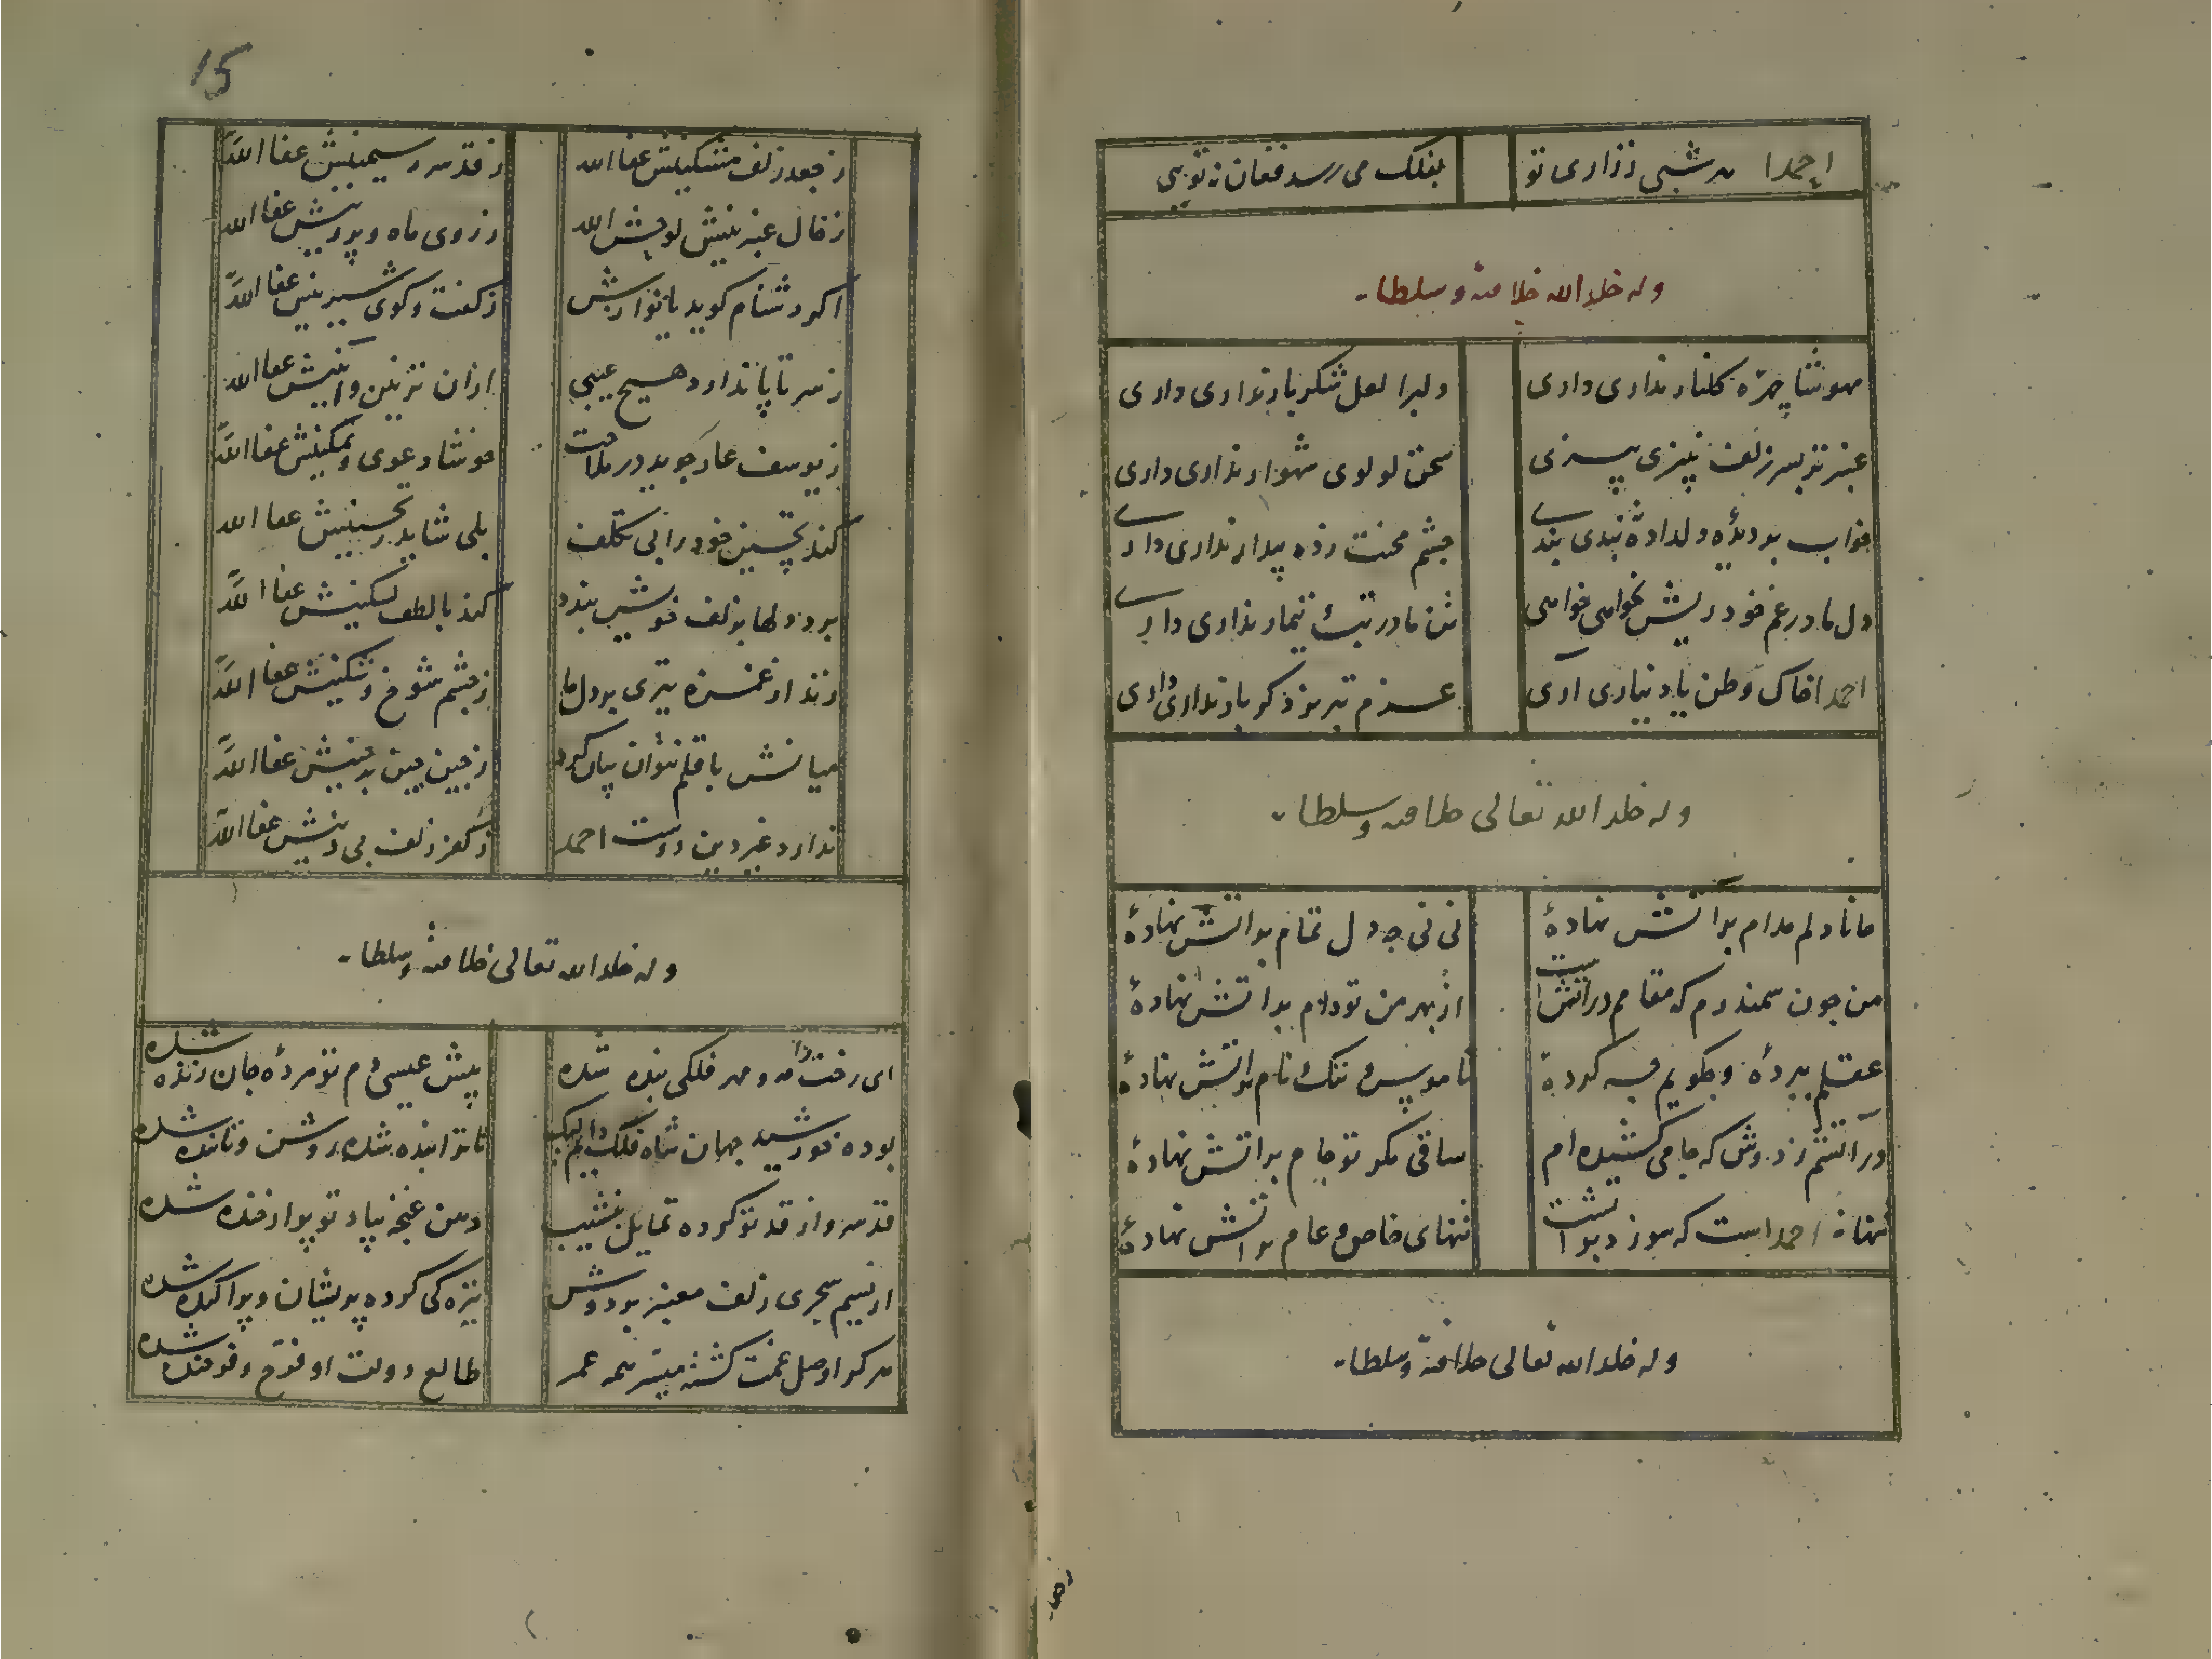 احمدا هر شبی ززاری تو
بفلک می رسد فغان ز تو بی
وله خلد الله خلافته و سلطانه
مهوشا چهره کلنار نداری داری
دلبرا لعل شکر بار نداری داری
عنبر تر بسر زلف نپیزی پیزی
سخن لولوی شهوار نداری داری
خواب بر دیدۀ دلداده نبندی بندی
چشم محنت زده بیدار نداری داری
دل ما در غم خود ریش نخواهی خواهی
تن ما در تب تیمار نداری داری
احمدا خاک وطن یاد نیاری آری
عزم تبریز دکر بار نداری داری
وله خلد الله تعالی خلافته و سلطانه
جانا دلم مدام بر آتش نهادۀ
نی نی چه دل تمام بر آتش نهادۀ
من چون سمندرم که مقامم در آتش است
از بهر من تو دام بر آتش نهادۀ
عقلم ببردۀ و بکویم چه کردۀ
ناموس و ننک و نام بر آتش نهادۀ
در آتشم ز دوش که جامی کشیده ام
ساقی مکر تو جام بر آتش نهادۀ
تنها نه احمد است که سوزد بر آتشت
تنهای خاص و عام بر آتش نهادۀ
وله خلد الله تعالی خلافته و سلطانه
15
ز جعد زلف مشکینش عفا الله
ز قد سرو سیمینش عفا الله
ز خال عنبرینش لوحش الله
ز روی ماه و پروینش عفا الله
اکر دشنام کوید یا نوازش
ز کفت و کوی شیرینش عفا الله
ز سر تا پا ندارد هیچ عیبی
ازان تزیین و آیینش عفا الله
ز یوسف عار جوید در ملاحت
خوشا دعوی و تمکینش عفا الله
کند تحسین خود را بی تکلف
بلی شاید ز تحسینش عفا الله
برد دلها بزلف خویش بندد
کند با لطف تسکینش عفا الله
زند از غمزه تیری بر دل ما
ز چشم شوخ و تنکینش عفا الله
میانش با قلم نتوان بیان کرد
ز چین جبین بر چینش عفا الله
ندارد غیر دین دوست احمد
ز کفر زلف بی دینش عفا الله
وله خلد الله تعالی خلافته و سلطانه
ای رخت را مه و مهر فلکی بنده شده
پیش عیسی دم تو مردۀ جان زنده شده
بوده خورشید جهان شاه فلک دایم لیک
تا ترا بنده شده روشن و تابنده شده
قد سرو از قد تو کرده تمایل بنشیب
دهن غنچه بیاد تو پر از خنده شده
از نسیم سحری زلف معنبر بر دوش
تیره کی کرده پریشان و پراکنده شده
هر کرا وصل غمت کشته میسر همه عمر
طالع دولت او فرخ و فرخنده شده